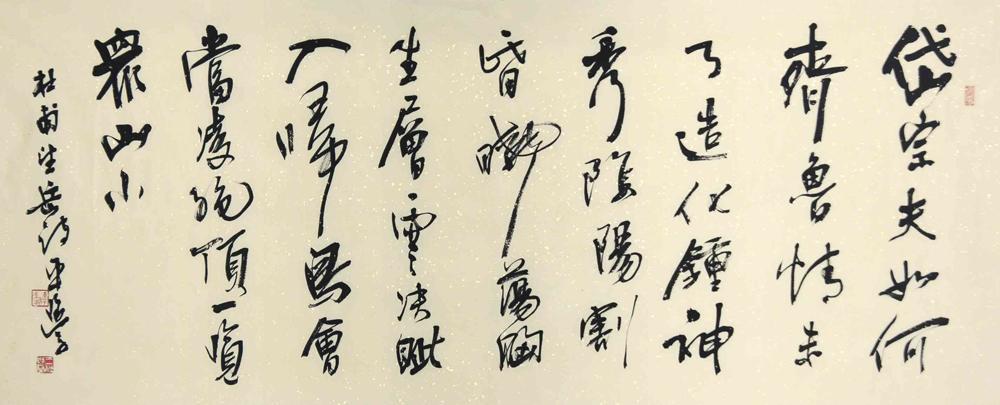 岱宗夫如何
齊魯情未
了造化鍾神
秀陰陽割
昏曉蕩胸
生層雲决眦
入歸鳥會
當凌絶頂一覽
眾山小
杜甫望岳詩